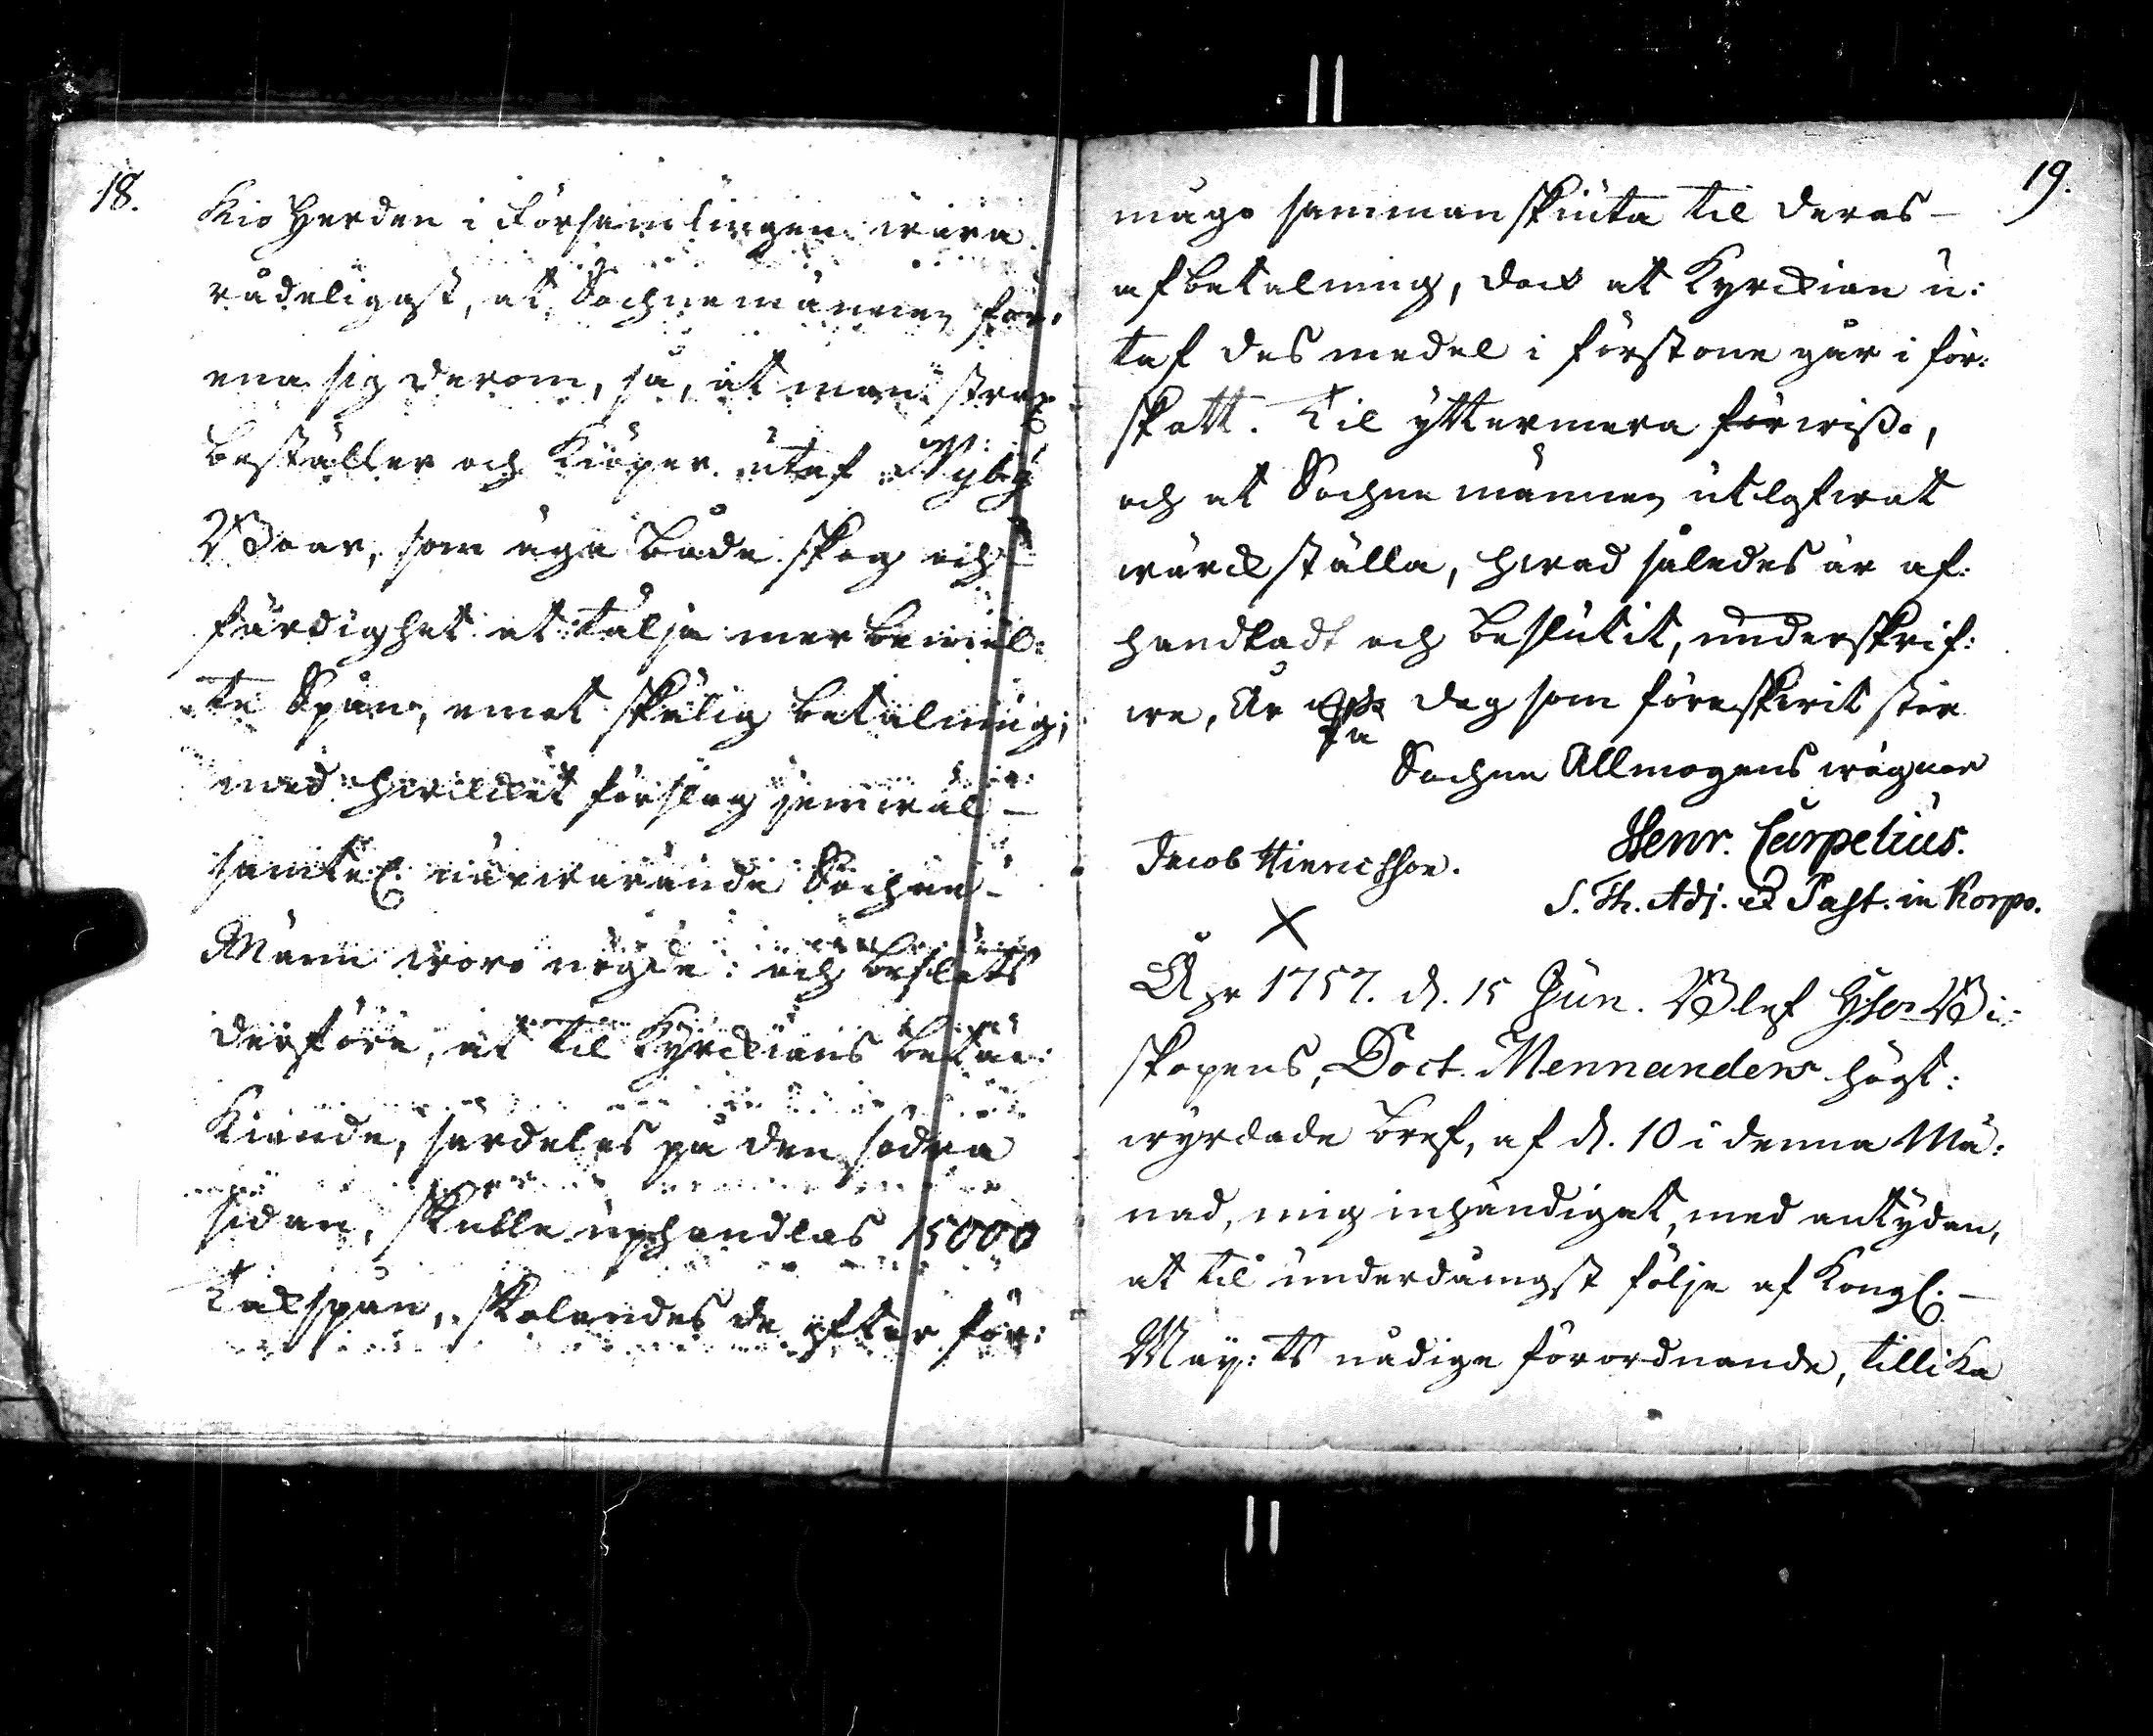 18.
Kio Herden i Församlingen wara
rådeligast, at Sochnemännen för,
ena sig derom, så, at man strax
beställer och Kiöper utaf Nyby
Boar, som äga både skog och
färdighet at tälja merbemäl:
te Spån, emot skälig betalning;
med hwilcket förslag jemwäl
samtel. närwarande Sochne-
Männ woro nögde: och beslöts
derföre, at til Kyrckians betäc:
Kiande, serdeles på den södra
sidan, skulle uphandlas 15000
Takspån, skolandes de efter för:
19.
måge sammanskiuta til deras
afbetalning, dock at Kyrckian u:
taf des medel i förstone går i för:
skott. Til yttermera förwisso,
och at Sochne männen utlofwat
wärckställa, hwad således är af:
handladt och beslutit, underskrif:
we, År och dag som föreskrit står
Sochne Allmogens wägnar
Henr. Carpelius.
Jacob Hinrichsson.
S. Th. Adj. et Past. in Korpo.
X
År 1757. d. 15 Jun. Blef Hr Bi:
skopens, Doct. Mennanders högt:
wyrdade bref, af d. 10 i denna Må:
nad, mig inhändigat, med antydan,
at til underdångst följe af Kongl.
May:ts nådige förordnande, tillika